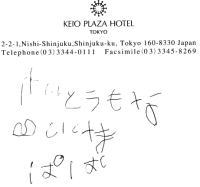 KEIO PLAZA HOTEL
TOKYO
2-2-1,Nishi-Shinjuku,Shinjuku-ku, Tokyo 160-8330 Japan
Telephone(03)3344-0111 Facsimile(03)3345-8269
けいとうもな
ぱぱ